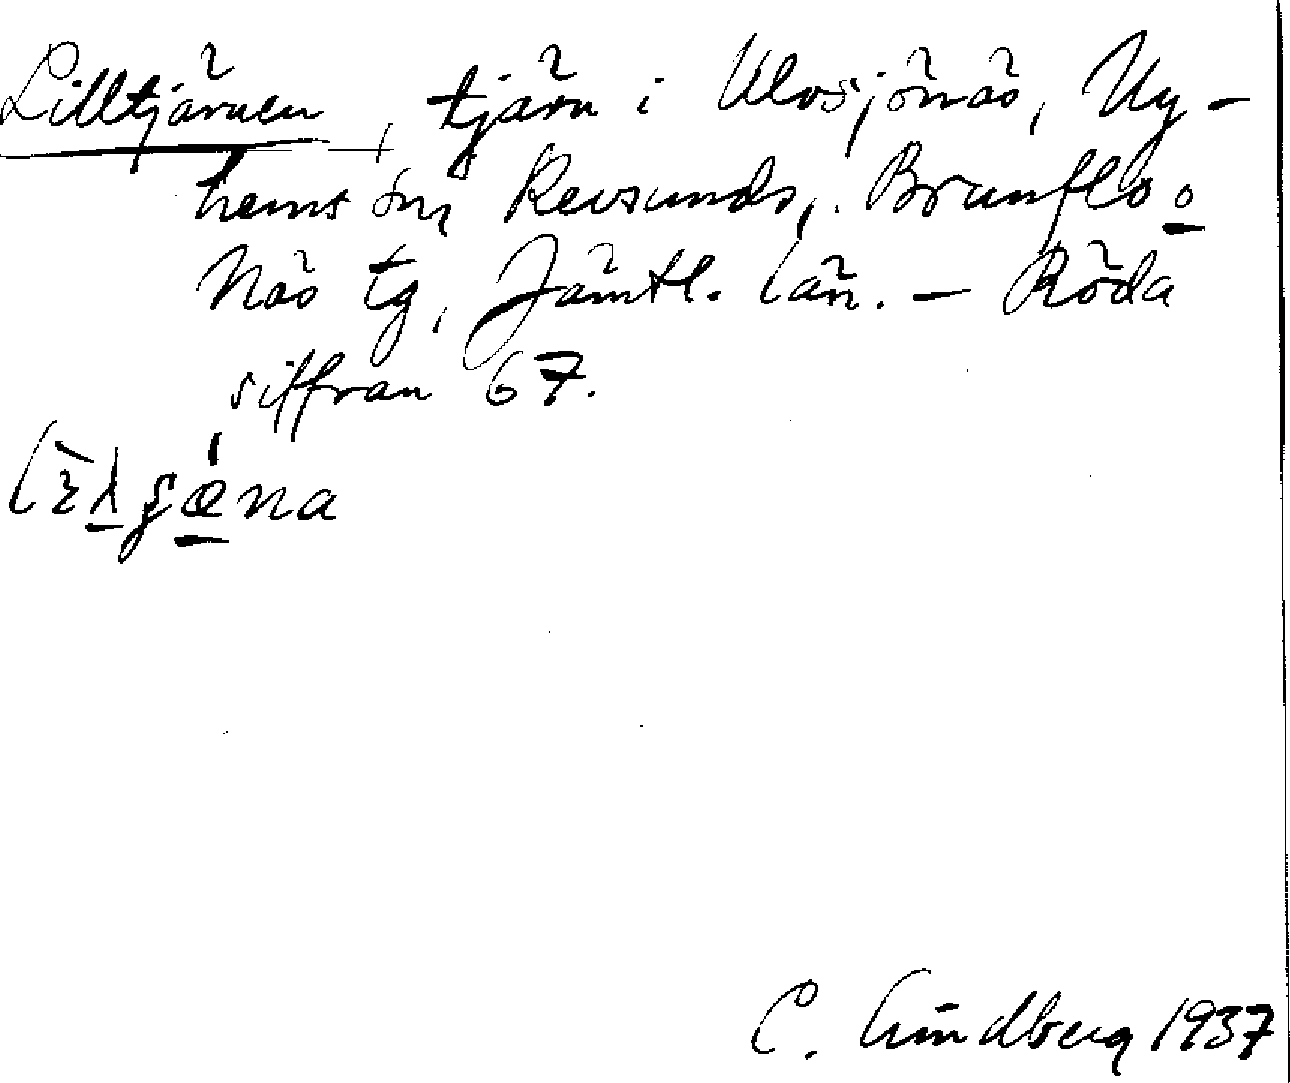 Lilltjärnen, tjärn i Ulvsjönäs, Ny-
hems sn, Revsunds, Brunflo o
Näs tg, Jämtl. län. — Röda
siffran 67.
C. Lindberg 1937